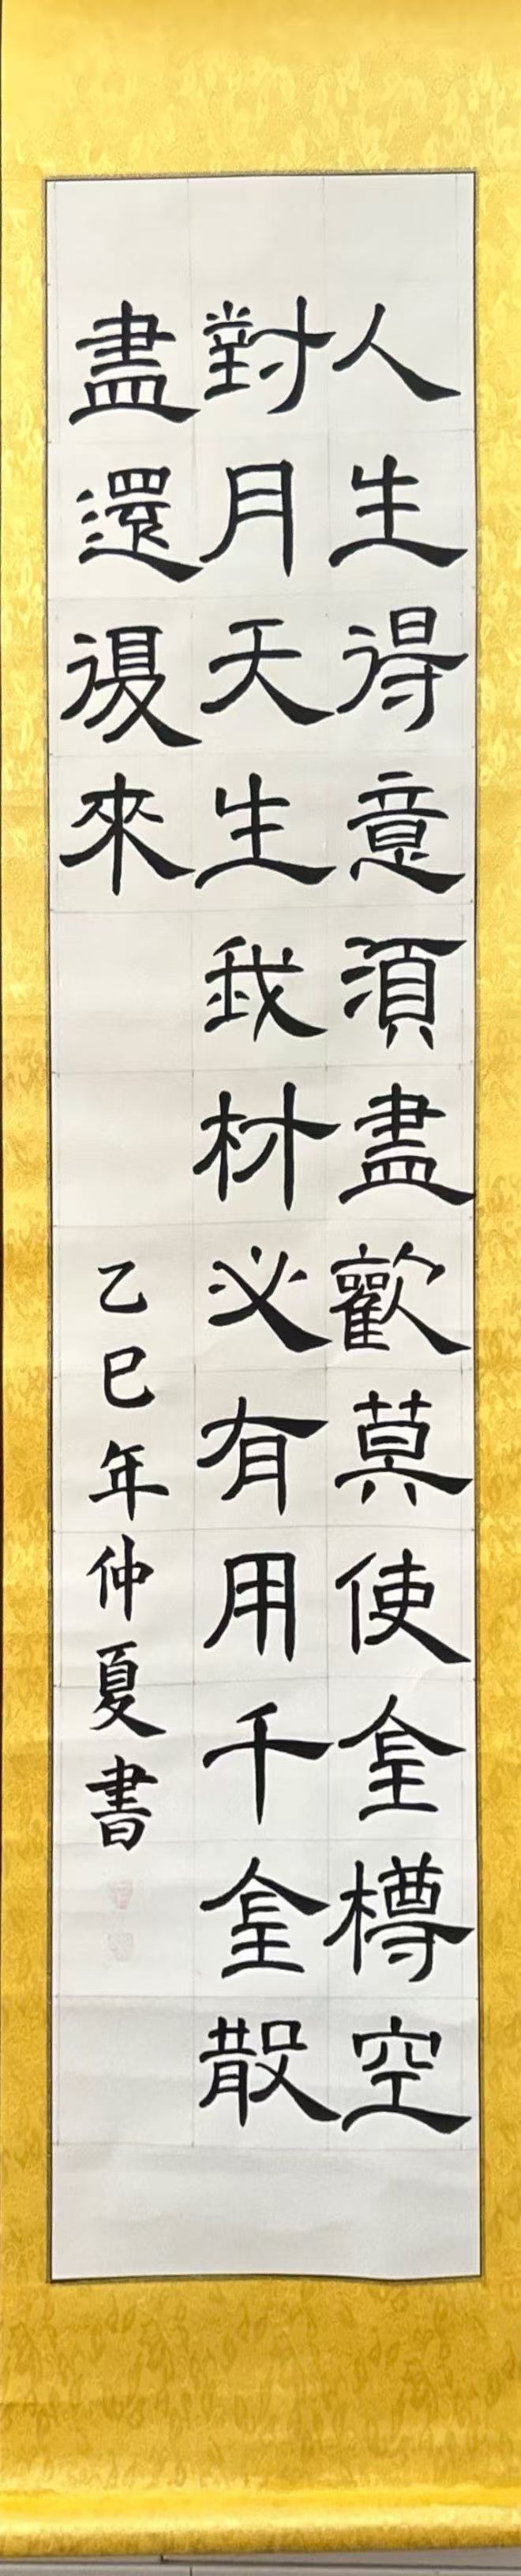 人生得意須盡歡莫使金樽空
對月天生我材必有用千金散
盡還復來
乙巳年仲夏書